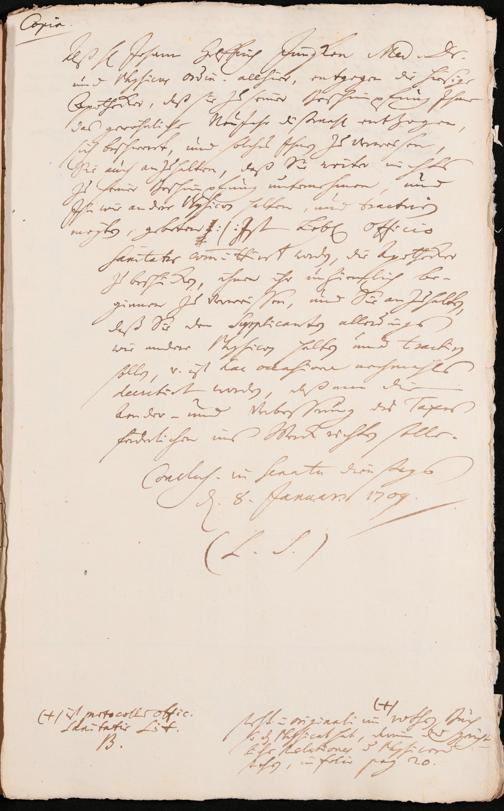 Copia.
Alß H. Johann Helffrich Jungken Med. Dr.
und Physicus ordin. allhier, entgegen die hiesige
Apothecker, daß sie zu seiner Beschimpfung Ihme
das gewöhnliche Neujahr entzogen,
sich beschwert, und solches Ihnen zu verweisen,
Sie auch anzuhalten, daß Sie weiter nichts
zu seiner Beschimpfung unternehmen, und
Ihn wie andere Physicos halten, und tractiren
mögten, gebeten: Ist Löbl. Officio
Sanitatis committirt worden, die Apothecker
zu beschicken, ihnen ihr
ginnen zu verweisen, und Sie anzuhalten,
daß Sie den Supplicanten allerdings
wie andere Physicos halten und tractiren
sollen, v. ist hac occasione nochmahls
decretirt worden, daß man die
und Verbesserung des Taxes
förderlichen ins Werck richten solle.
Conclus. in Senatu Dienstags
d. 8. Januarii 1709.
(L. S.)
(+) ist protocollo offic.
Sanitatis Lit.
B.
(+)
steht in originali im rothen Buch
Physicat
Relationes Physicorum
in folio pag 20.